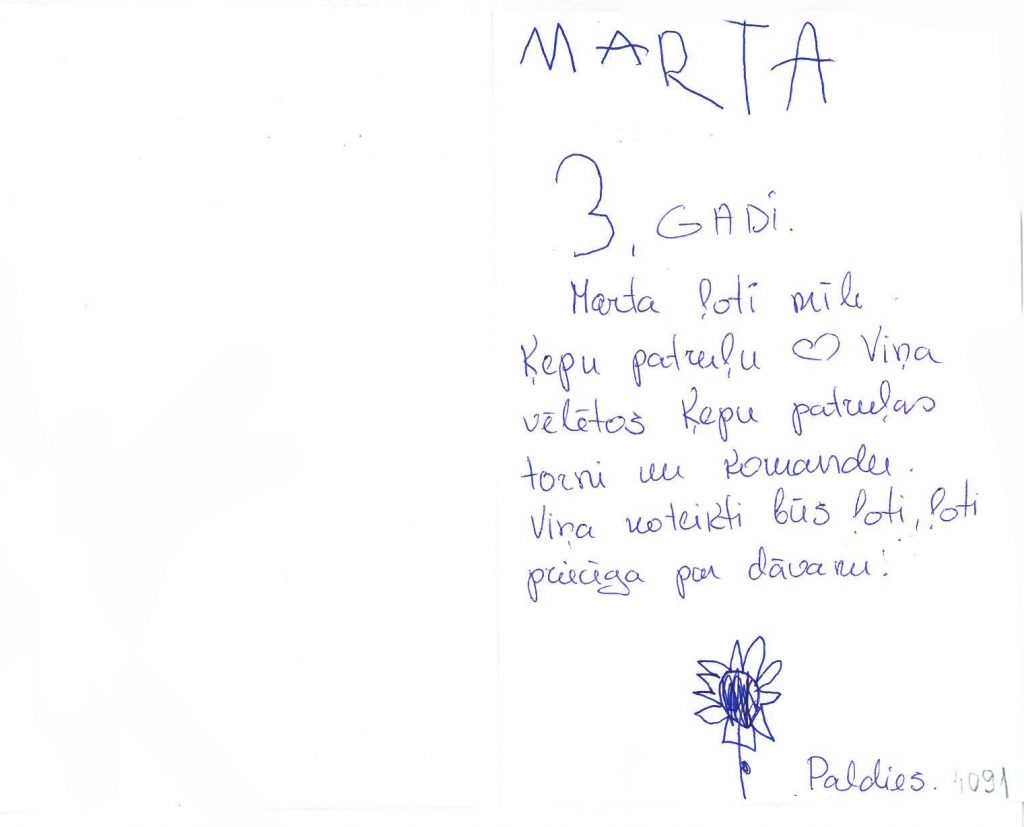 MARTA
3. GADI.
Marta ļoti mīl
Ķepu patruļu ♡ Viņa
vēlētos Ķepu patruļas
torni un komandu.
Viņa noteikti būs ļoti, ļoti
priecīga par dāvanu!
Paldies. 4091